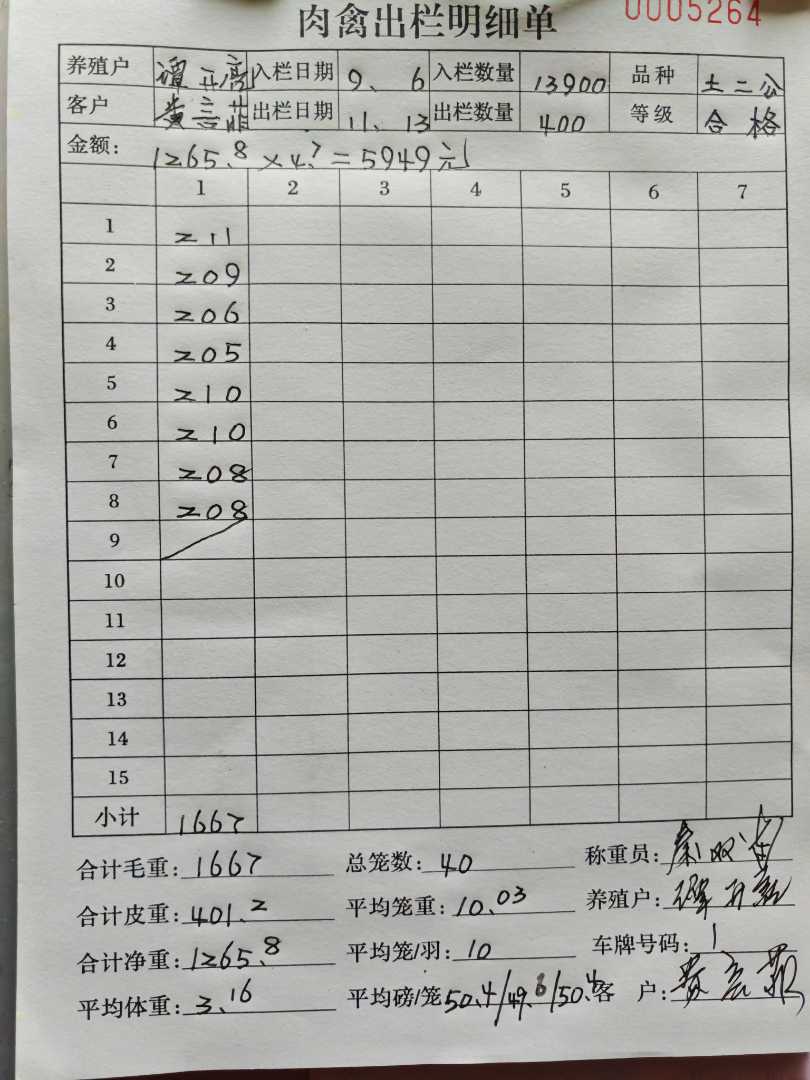 肉禽出栏明细单 0005264
养殖户 谭开亮 入栏日期 9、6 入栏数量 13900 品种 土二公
客户 黄言菲 出栏日期 11、13 出栏数量 400 等级 合格
金额: 1265.8 × 4.7 = 5949元
1 2 3 4 5 6 7
1 211
2 209
3 206
4 205
5 210
6 210
7 208
8 208
9
10
11
12
13
14
15
小计 1667
合计毛重: 1667 总笼数: 40 称重员:
合计皮重: 401.2 平均笼重: 10.03 养殖户: 谭开亮
合计净重: 1265.8 平均笼/羽: 10 车牌号码: 1
平均体重: 3.16 平均磅/笼 50.4/49.8/50.4 客 户: